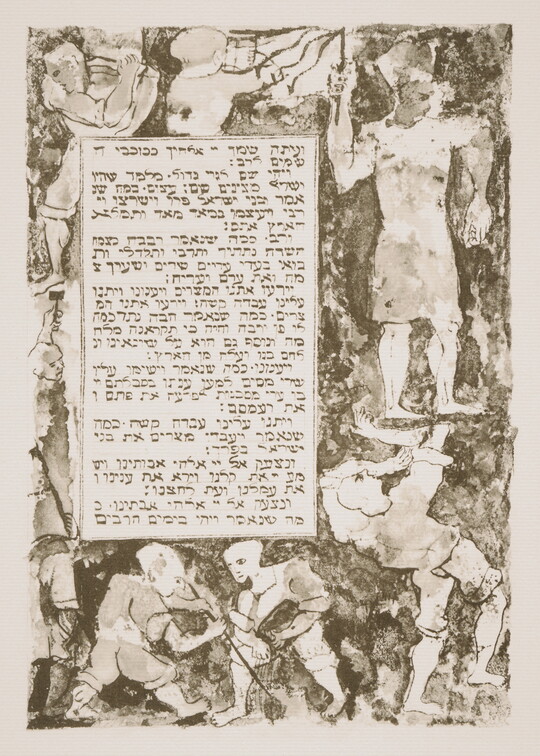 ועתה שמך יי אלהיך ככוכבי ה
שמים לרב:
ויהי שם לגוי גדול. מלמד שהיו
ישראל מצוינים שם: עצום. כמה שנ
אמר ובני ישראל פרו וישרצו וי
רבו ויעצמו במאד מאד ותמלא
הארץ אתם:
ורב. כמה שנאמר רבבה כצמח
השדה נתתיך ותרבי ותגדלי ות
בואי בעדי עדיים שדים ושערך צ
מח ואת ערם ועריה:
וירעו אתנו המצרים ויענונו ויתנו
עלינו עבדה קשה: וירעו אתנו המ
צרים. כמה שנאמר הבה נתחכמה
לו פן ירבה והיה כי תקראנה מלח
מה ונוסף גם הוא על שנאינו ונ
לחם בנו ועלה מן הארץ:
ויענונו. כמה שנאמר וישימו עליו
שרי מסים למען ענתו בסבלתם וי
בן ערי מסכנות לפרעה את פתם ו
את רעמסס:
ויתנו עלינו עבדה קשה. כמה
שנאמר ויעבדו מצרים את בני
ישראל בפרך:
ונצעק אל יי אלהי אבותינו ויש
מע יי את קלנו וירא את ענינו ו
את עמלנו ואת לחצנו:
ונצעק אל יי אלהי אבתינו. כ
מה שנאמר ויהי בימים הרבים